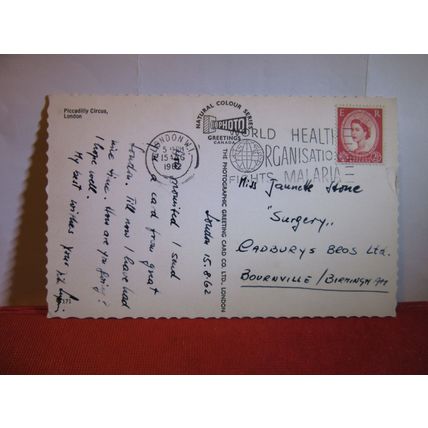 Piccadilly Circus,
London
As promised I send
you a card from great
London. Till now I have had
nice time. How are you going?
I hope well.
My best wishes your
London 15.8.62
NATURAL COLOUR SERIES
PHOTO
GREETINGS
CANADA
THE PHOTOGRAPHIC GREETING CARD CO. LTD., LONDON
LONDON W.1.
15 AUG
1962
WORLD HEALTH
ORGANISATION
FIGHTS MALARIA
E R
Miss Jannette Stone
"Surgery"
CADBURYS BROS Ltd.
BOURNVILLE / BIRMINGHAM